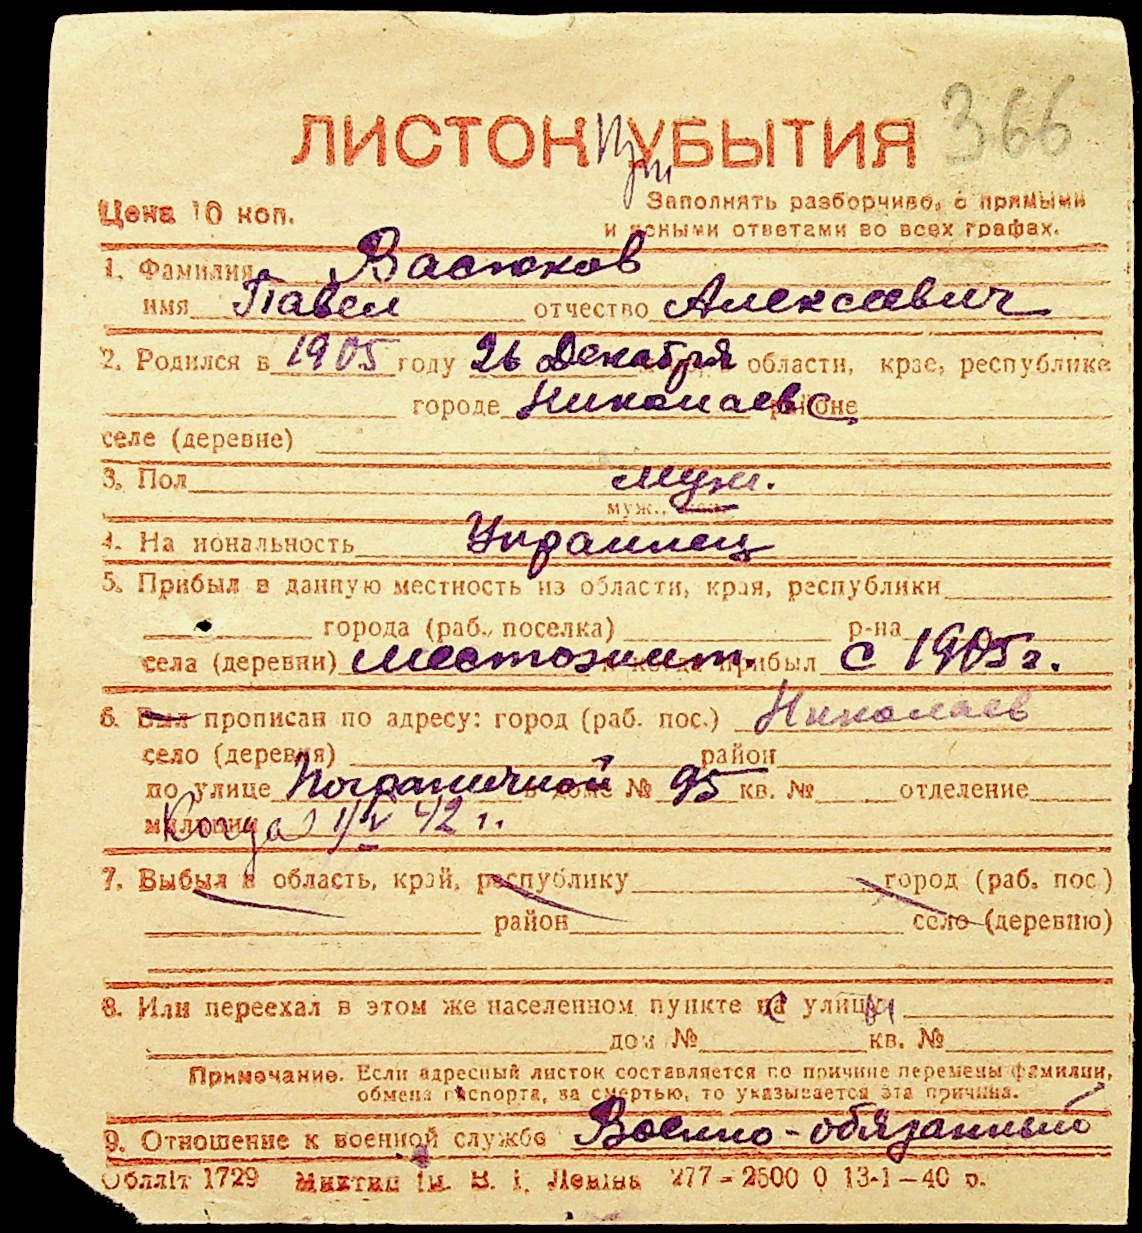 366
ЛИСТОК При УБЫТИЯ
Цена 10 коп.
Заполнять разборчиво, с прямыми
и ясными ответами во всех графах.
1. Фамилия Васюков
имя Павел отчество Алексеевич
2. Родился в 1905 году 26 Декабря области, крае, республике
городе Николаев районе
селе (деревне)
3. Пол муж.
муж., жен.
4. Национальность Украинец
5. Прибыл в данную местность из области, края, республики
города (раб., поселка) р-на
села (деревни) местожит. и когда прибыл с 1905 г.
6. Был прописан по адресу: город (раб. пос.) Николаев
село (деревня) район
по улице Пограничной в доме № 95 кв. № отделение
милиции Когда 1/V 42 г.
7. Выбыл в область, край, республику город (раб. пос)
район село (деревню)
8. Или переехал в этом же населенном пункте на улицу
дом № кв. №
Примечание. Если адресный листок составляется по причине перемены фамилии,
обмена паспорта, за смертью, то указывается эта причина.
9. Отношение к военной службе Военно-обязанный
Обллiт 1729 Миктип iм. В. I. Ленiна 277-2500 0 13-1-40 р.